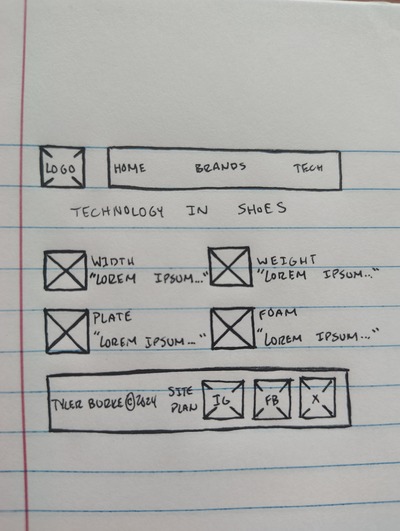 LOGO HOME BRANDS TECH
TECHNOLOGY IN SHOES
WIDTH
"LOREM IPSUM..."
WEIGHT
"LOREM IPSUM..."
PLATE
"LOREM IPSUM..."
FOAM
"LOREM IPSUM..."
TYLER BURKE © 2024
SITE
PLAN
IG FB X